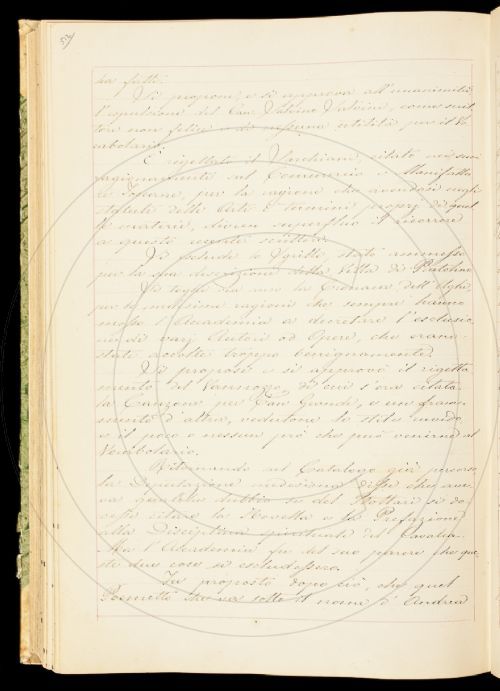 54
ha fatti.
Si propone, e si approva all'unanimità
l'espulsione del Can. Salvino Salvini, come scrit-
tore non felice e di nessuna utilità per il Vo-
cabolario.
È rigettato il citato nei suoi
ragionamenti sul Commercio e Manifatture
Toscane, per la ragione che avendosi negli
statuti delle Arti i termini proprj di quel-
le materie, divien superfluo il ricorrere
a questo recente scrittore.
Si esclude lo Sgrilli, stato ammesso
per la sua descrizione della Villa di Pratolino
Si toglie via la dell'
per le medesime ragioni che sempre hanno
mosso l'Accademia a decretare l'esclusio-
ne di varj Autori od Opere, che erano
state accolte troppo benignamente.
Si propose e si approvò il rigetta-
mento del di cui s'era citata
la Canzone per Can Grande, e un fram-
mento d'altra, vedutone lo stile
e il poco o nessun prò che può venirne al
Vocabolario.
Ritornando sul Catalogo già percorso
la Deputazione medesima disse che ave-
va qualche dubbio se del Bottari si do-
vesse citare la Novella e la Prefazione
alla Disciplina spirituale del Cavalca.
Ma l'Accademia fu del suo parere che que-
ste due cose si escludessero.
Fu proposto dopo ciò, che quel
Poemetto che va sotto il nome d'Andrea